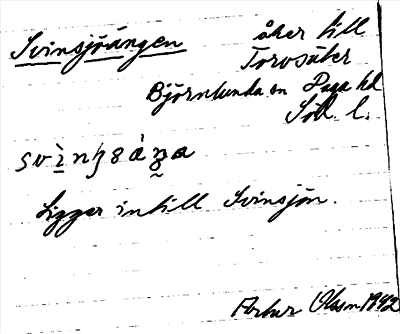 Svinsjöängen åker till
Torvsäter
Björnlunda sn Daga hd
Söd. l.
Ligger intill Svinsjön.
Artur Olsson 1942